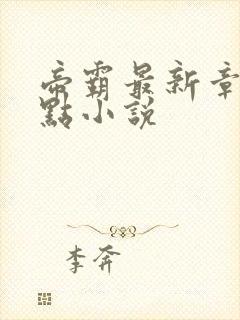 帝霸最新章
點小說
李奔